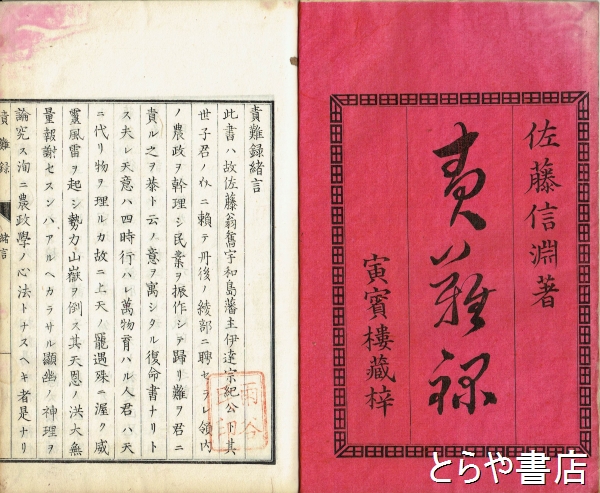 佐藤信淵著
責難録
寅賓樓藏梓
責難録緒言
此書ハ故佐藤翁舊宇和島藩主伊達宗紀公下其
世子君ノ為ニ賴テ丹後ノ綾部ニ聘セラレ領内
ノ農政ヲ幹理シ民業ヲ振作シテ歸リ難ヲ君ニ
責ル之ヲ恭ト云ノ意ヲ寓シタル復命書ナリト
ス夫レ天意ハ四時行ハレ萬物育ハル人君ハ天
ニ代リ物ヲ理ルカ故ニ上天ノ寵遇殊ニ渥ク威
靈風雷ヲ起シ勢力山嶽ヲ倒ス其天恩ノ洪大無
量報謝セスンハアルヘカラサル顯幽ノ神理ヲ
論究ス洵ニ農政學ノ心法トナスヘキ者是ナリ
責難録
緒言
雨谷
とらや書店